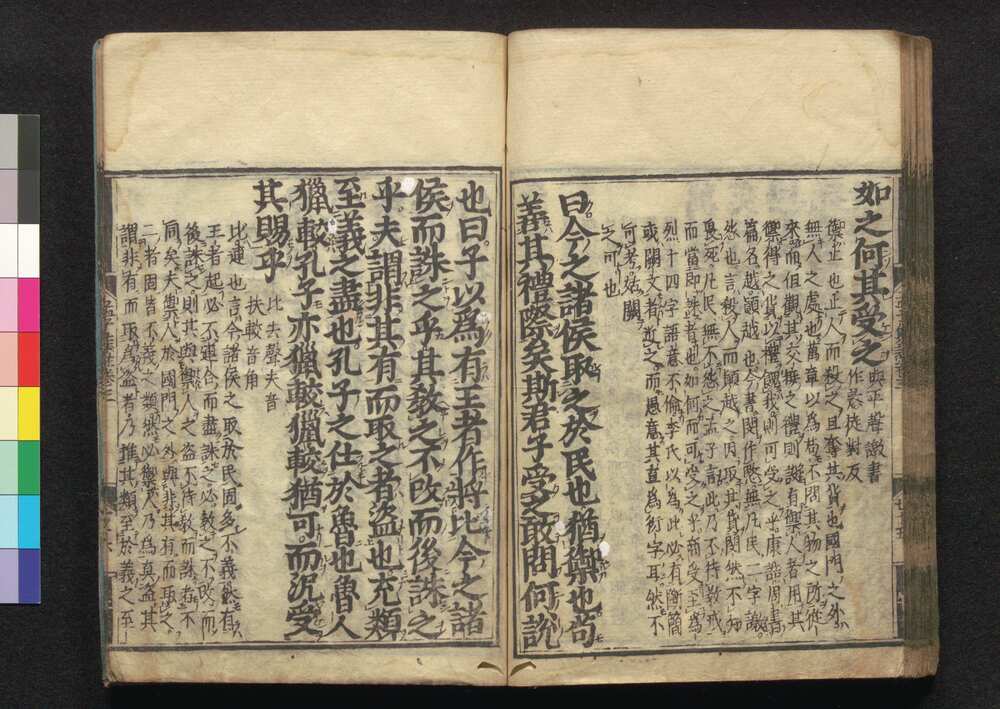 如之何其受之
與平聲譈書
作憝徒對反
禦止也止人而殺之且奪其貨也國門之外
無人之處也萬章以爲苟不問其物之所從
來而但觀其交接之禮則設有禦人者用其
禦得之貨以禮饋我則可受之乎康誥周書
篇名越顚越也今書閔作愍無凡民二字譈
怨也言殺人而顚越之因取其貨閔然不知
畏死凡民無不怨之孟子言此乃不待教戒
而當即誅者也如何而可受之乎商受至爲
烈十四字語意不倫李氏以爲此必有斷簡
或闕文者近之而愚意其直爲衍字耳然不
可考姑闕
之可也
曰今之諸侯取之於民也猶禦也苟
善其禮際矣斯君子受之敢問何說
也曰子以爲有王者作將比今之諸
侯而誅之乎其教之不改而後誅之
乎夫謂非其有而取之者盜也充類
至義之盡也孔子之仕於魯也魯人
獵較孔子亦獵較獵較猶可而況受
其賜乎
比去聲夫音
扶較音角
比連也言今諸侯之取於民固多不義然有
王者起必不連合而盡誅之必教之不改而
後誅之則其與禦人之盜不待教而誅者不
同矣夫禦人於國門之外與非其有而取之
二者固皆不義之類然必禦人乃爲真盜其
謂非有而取爲盜者乃推其類至於義之至